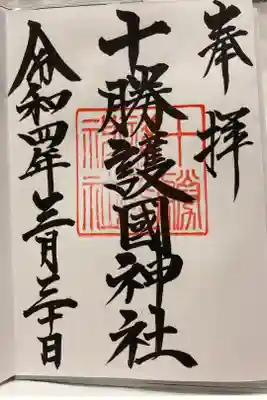 奉拝
十勝護國神社
令和四年三月三十日
十勝
神社